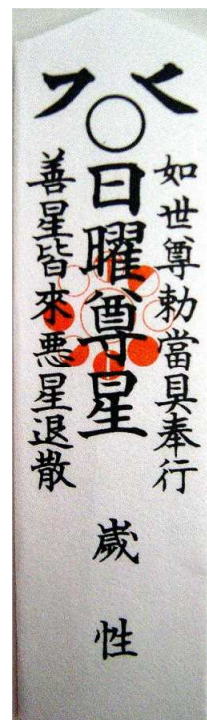 如世尊勅當具奉行
日曜尊星
歳 性
善星皆來悪星退散